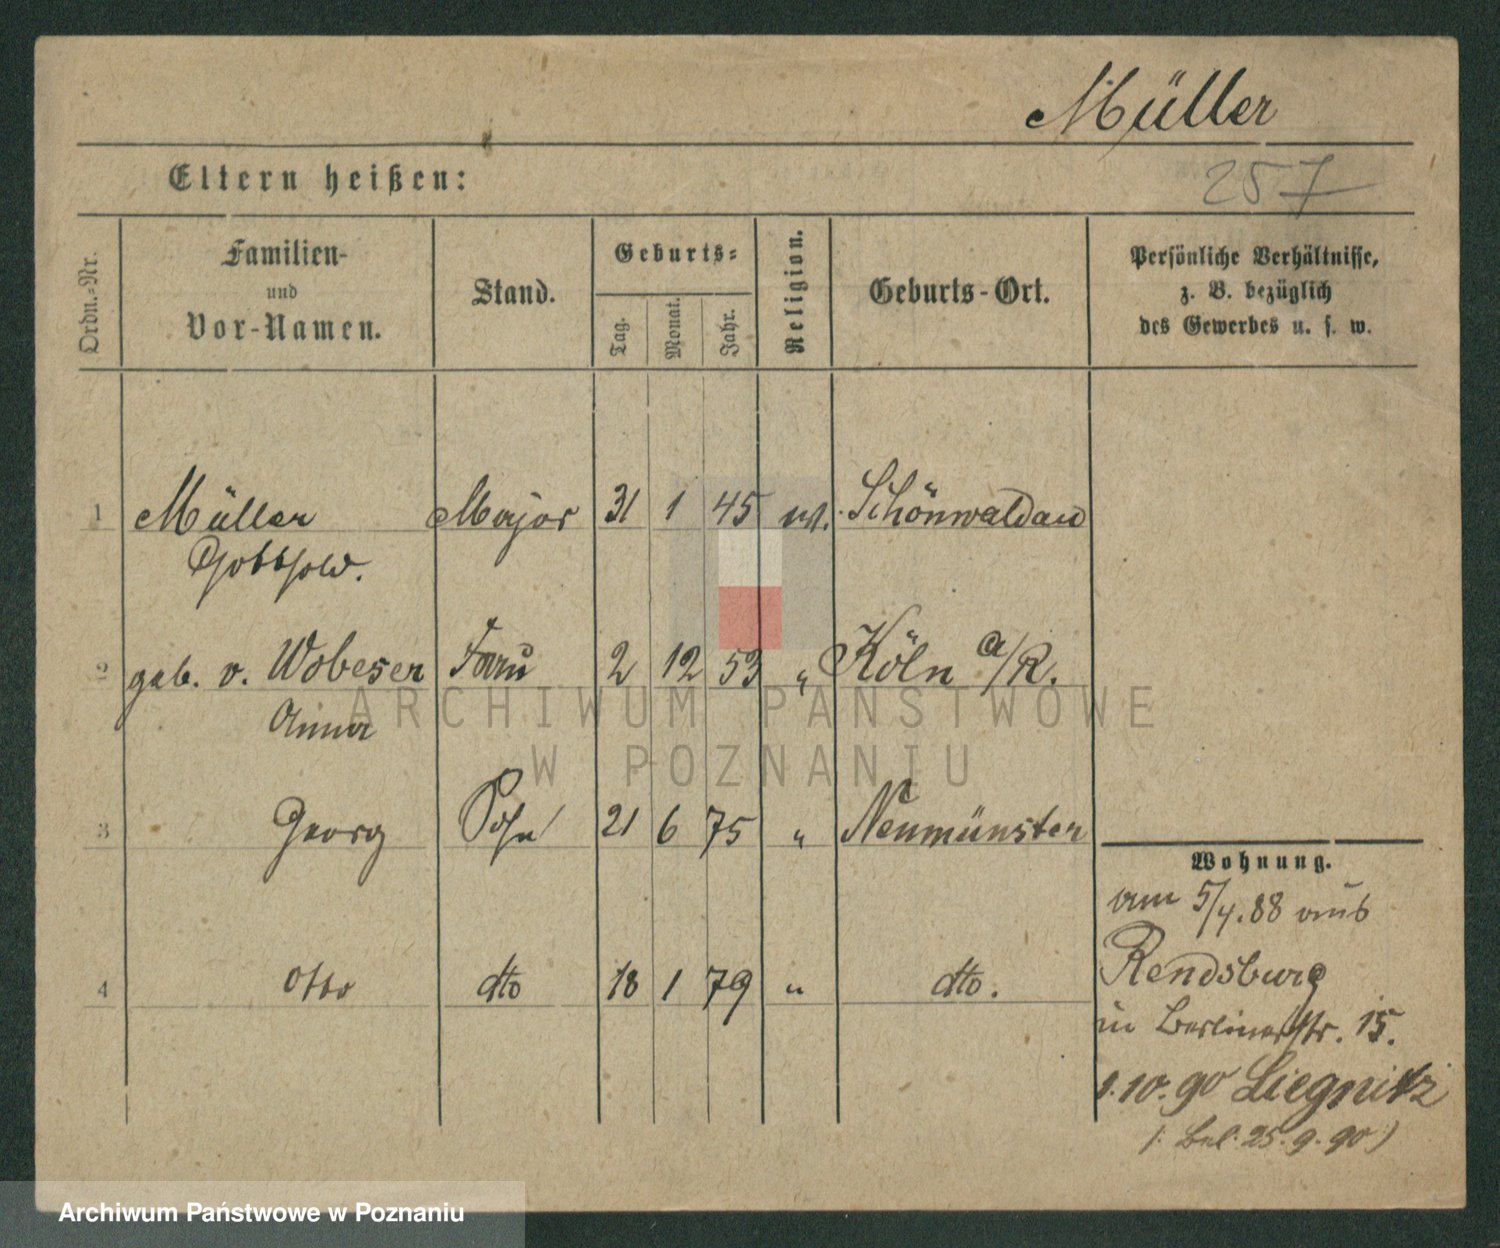 Müller
Eltern heißen:
257
Ordn.-Nr.
Familien-
und
Vor-Namen.
Stand.
Geburts-
Tag.
Monat.
Jahr.
Religion.
Geburts-Ort.
Persönliche Verhältnisse,
z. B. bezüglich
des Gewerbes u. s. w.
1 Müller Major 31 1 45 Schönwaldau
Gotthold.
2 geb. v. Wobeser Frau 2 12 53 " Köln a/R.
Anna
ARCHIWUM PAŃSTWOWE
W POZNANIU
3 Georg Sohn 21 6 75 " Neumünster
Wohnung.
am 5/4.88 aus
4 Otto dto 18 1 79 " dto.
Rendsburg
in Berlinerstr. 15.
1.10.90 Liegnitz
(: Bel. 25.9.90)
Archiwum Państwowe w Poznaniu